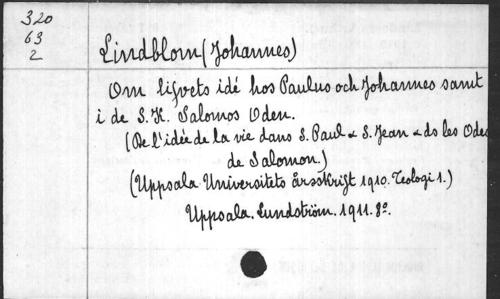 320
63
2
Lindblom (Johannes)
Om lifvets idé hos Paulus och Johannes samt
i de S. K. Salomos Oden.
(De l'idée de la vie dans S. Paul & S. Jean & ds les Odes
de Salomon.)
(Uppsala Universitets årsskrift 1910. Teologi 1.)
Uppsala. Lundström. 1911. 8º.